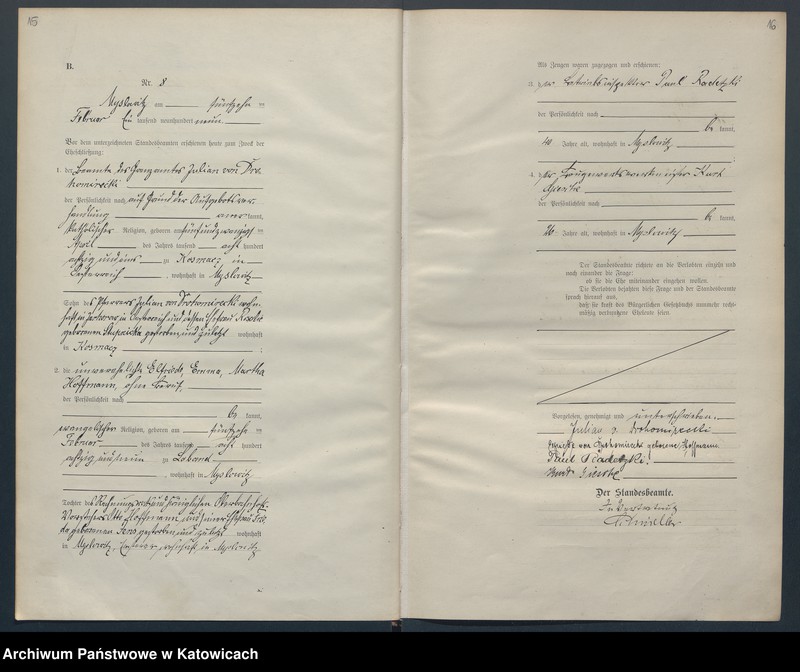 15
B.
Nr. 8
Myslowitz am fünfzehn ten
Februar Ein tausend neunhundert neun.
Vor dem unterzeichneten Standesbeamten erschienen heute zum Zweck der
Eheschließung:
1. der Beamte des Julian von Dro-
homirecki
der Persönlichkeit nach auf Grund der Aufgebotsver-
handlung aner kannt,
katholischer Religion, geboren am fünfundzwanzigsten
April des Jahres tausend acht hundert
achtzig und eins zu Kosmacz in
Oesterreich, wohnhaft in Myslowitz
Sohn des Pfarrers Julian von Drohomirecki wohn-
haft in in Oesterreich und dessen Ehefrau
geborenen gestorben und zuletzt wohnhaft
in Kosmacz ;
2. die unverehelichte Elfriede, Emma, Martha
Hoffmann, ohne Beruf,
der Persönlichkeit nach
be kannt,
evangelischer Religion, geboren am fünfzehn ten
Februar des Jahres tausend acht hundert
achtzig und neun zu Laband
, wohnhaft in Myslowitz
Tochter des Rechnungsrat und Königlichen Oberbahnhofs-
Vorstehers Otto Hoffmann und seiner Ehefrau
geborenen gestorben und zuletzt wohnhaft
in Myslowitz, Ersterer wohnhaft in Myslowitz
16
Als Zeugen waren zugezogen und erschienen:
3. der Paul Radetzki
der Persönlichkeit nach
be kannt,
40 Jahre alt, wohnhaft in Myslowitz
;
4. der Kurt
Gierske
der Persönlichkeit nach
be kannt,
26 Jahre alt, wohnhaft in Myslowitz
Der Standesbeamte richtete an die Verlobten einzeln und
nach einander die Frage:
ob sie die Ehe miteinander eingehen wollen.
Die Verlobten bejahten diese Frage und der Standesbeamte
sprach hierauf aus,
daß sie kraft des Bürgerlichen Gesetzbuchs nunmehr recht-
mäßig verbundene Eheleute seien
Vorgelesen, genehmigt und unterschrieben.
Julian v. Drohomirecki
von Drohomirecki geborene Hoffmann.
Paul Radetzki
Kurt Gierske
Der Standesbeamte.
In Vertretung
Archiwum Państwowe w Katowicach